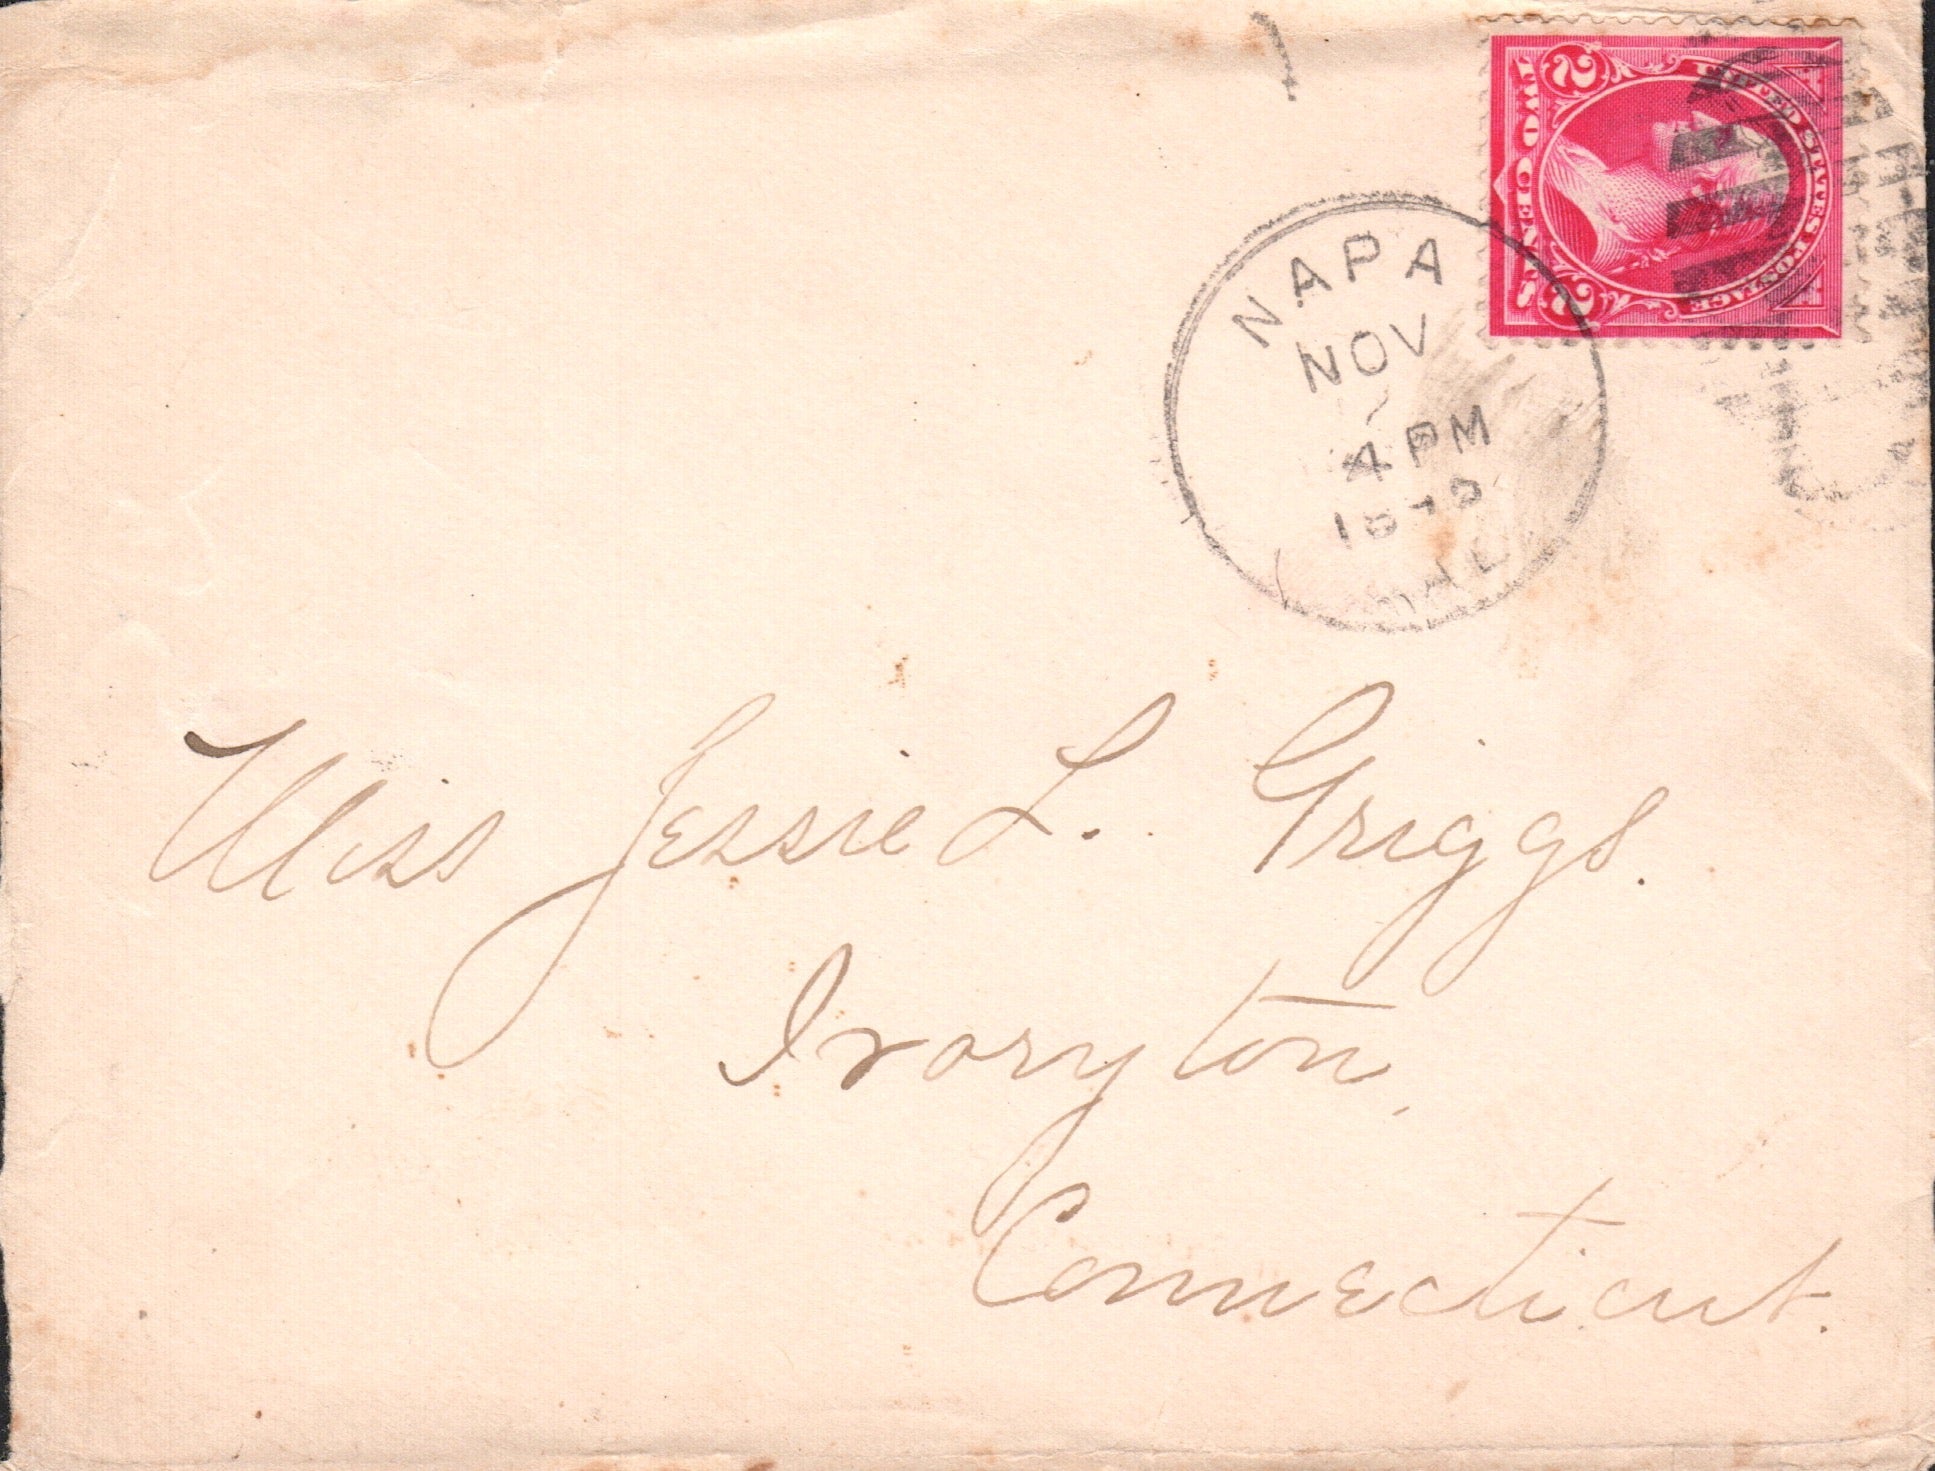 UNITED STATES POSTAGE
2 TWO CENTS 2
NAPA
NOV
4 PM
CAL
Miss Jessie L. Griggs.
Ivoryton,
Connecticut.